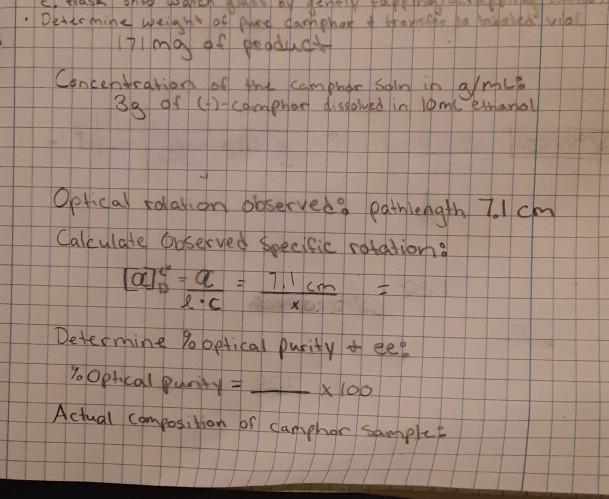 onto watch glass by gently
• Determine weight of pure camphor + transfer to labeled vial
171 mg of product
Concentration of the camphor soln in g/mL:
3g of (-)-camphor dissolved in 10mL ethanol
Optical rotation observed: pathlength 7.1 cm
Calculate Observed Specific rotation:
[α]D = α / l·c = 7.1 cm / x =
Determine % optical purity + ee:
% Optical purity = ___ x 100
Actual composition of camphor sample: